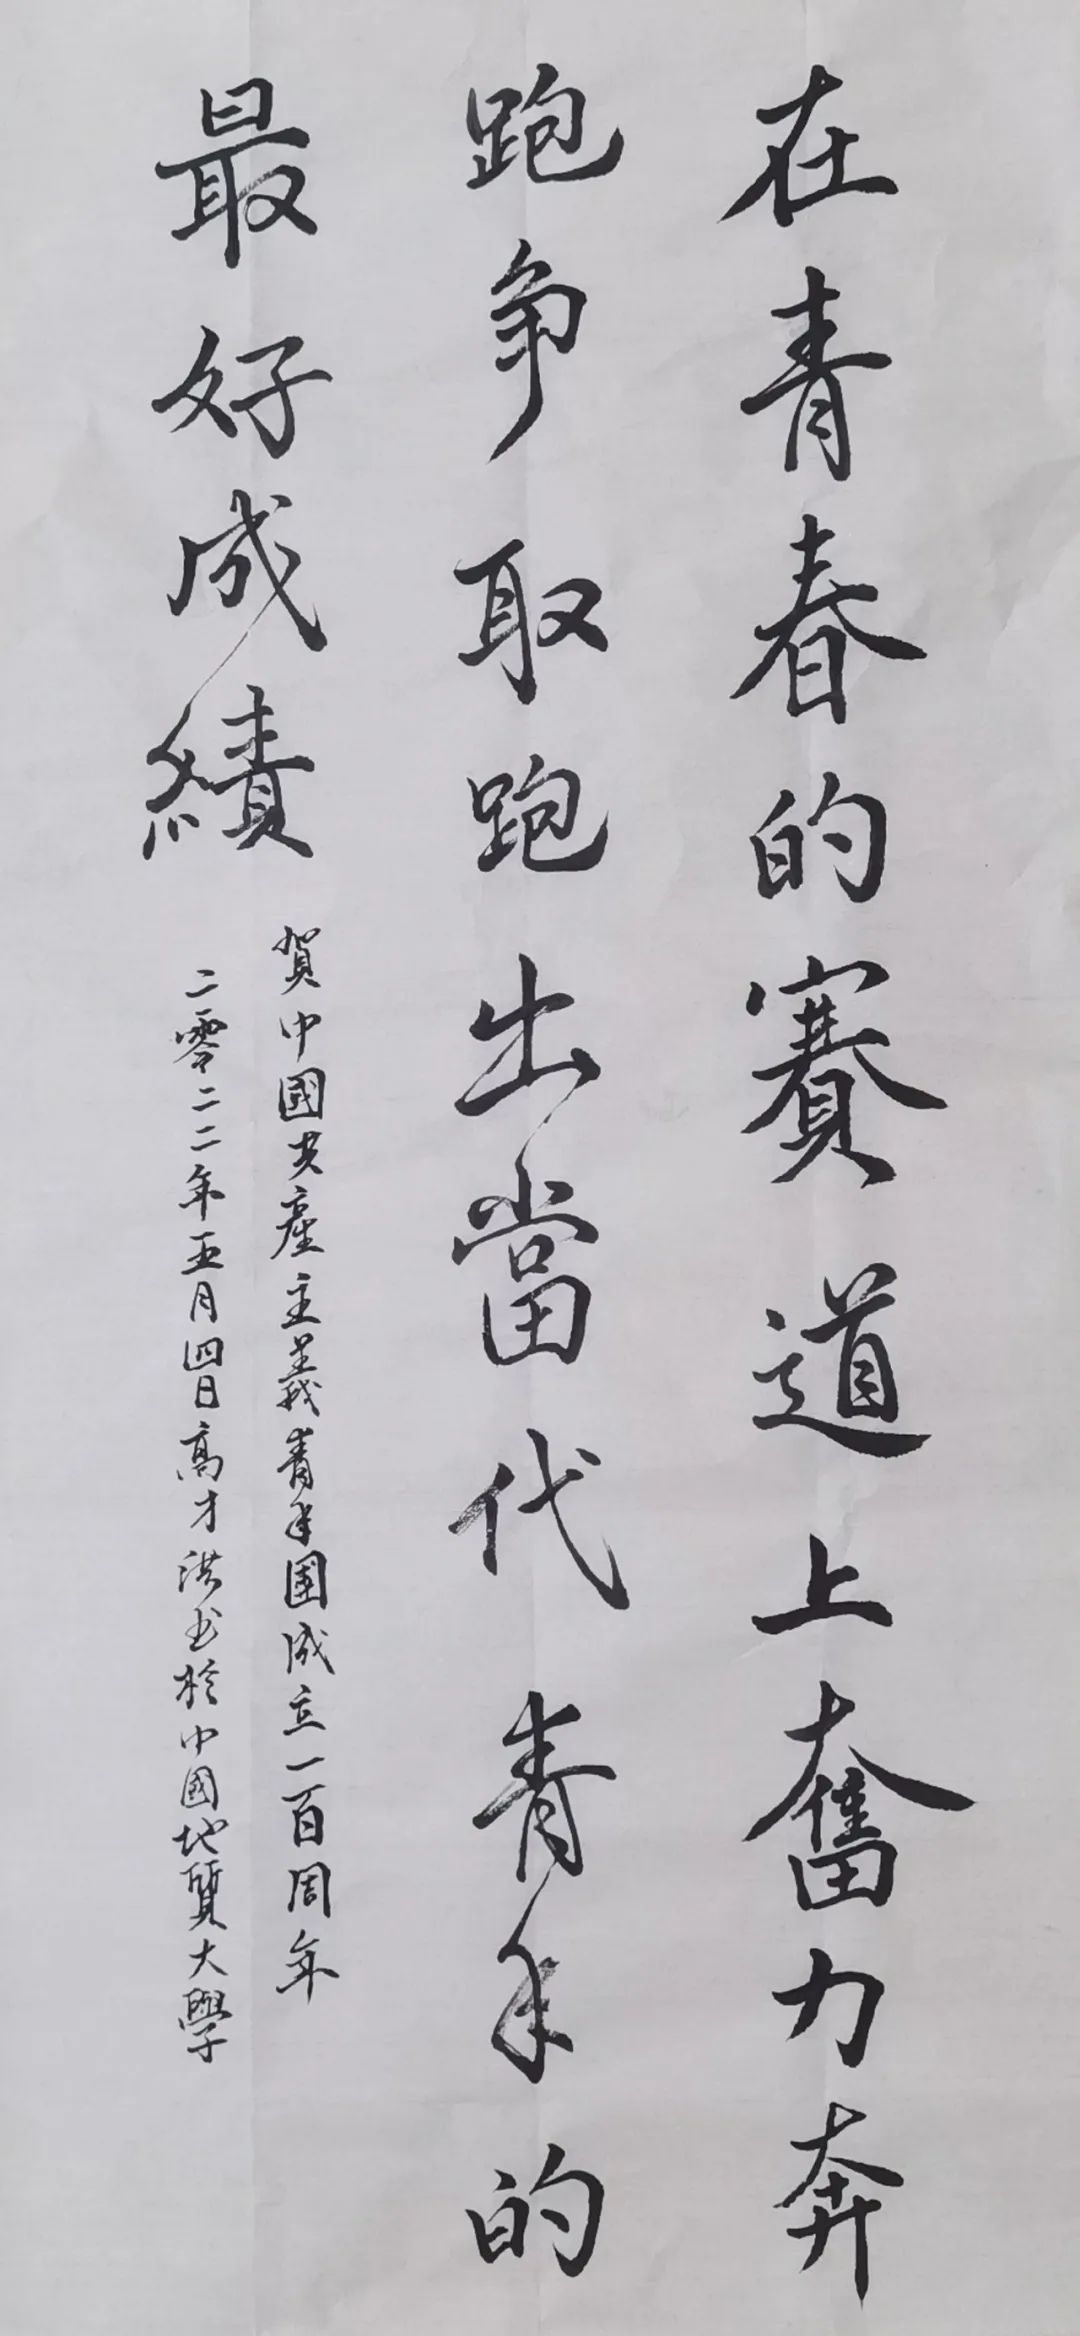 在青春的賽道上奮力奔
跑争取跑出當代青年的
最好成績
賀中國共產主義青年團成立一百周年
二零二二年五月四日高才洪书於中國地質大學